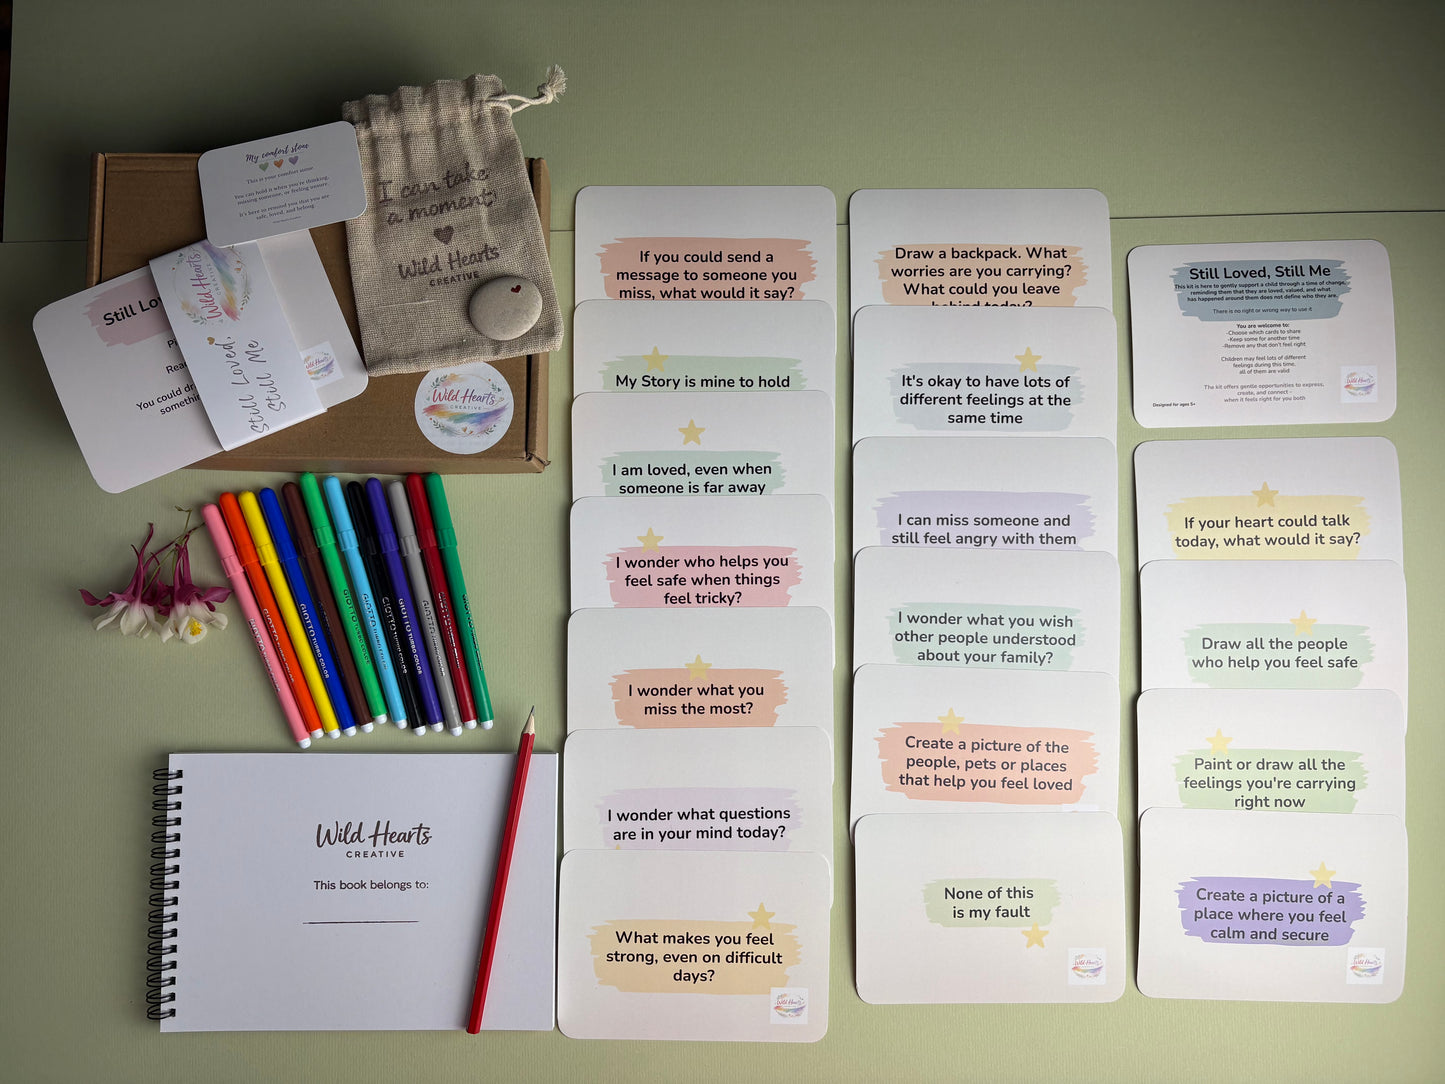 My comfort stone
This is your comfort stone
You can hold it when you're thinking,
missing someone, or feeling unsure.
It's here to remind you that you are
safe, loved, and belong.
I can take
a moment
Wild Hearts
CREATIVE
Still
Wild Hearts
CREATIVE
Still Loved,
Still Me
You could
Wild Hearts
CREATIVE
GIOTTO TURBO COLOR
GIOTTO TURBO COLOR
GIOTTO TURBO COLOR
GIOTTO TURBO COLOR
GIOTTO TURBO COLOR
Wild Hearts
CREATIVE
This book belongs to:
If you could send a
message to someone you
miss, what would it say?
My Story is mine to hold
I am loved, even when
someone is far away
I wonder who helps you
feel safe when things
feel tricky?
I wonder what you
miss the most?
I wonder what questions
are in your mind today?
What makes you feel
strong, even on difficult
days?
Wild Hearts
Draw a backpack. What
worries are you carrying?
What could you leave
behind today?
It's okay to have lots of
different feelings at the
same time
I can miss someone and
still feel angry with them
I wonder what you wish
other people understood
about your family?
Create a picture of the
people, pets or places
that help you feel loved
None of this
is my fault
Wild Hearts
Still Loved, Still Me
This kit is here to gently support a child through a time of change,
reminding them that they are loved, valued, and what
has happened around them does not define who they are.
There is no right or wrong way to use it
You are welcome to:
-Choose which cards to share
-Keep some for another time
-Remove any that don't feel right
Children may feel lots of different
feelings during this time.
all of them are valid
The kit offers gentle opportunities to express,
create, and connect -
when it feels right for you both
Designed for ages 5+
If your heart could talk
today, what would it say?
Draw all the people
who help you feel safe
Paint or draw all the
feelings you're carrying
right now
Create a picture of a
place where you feel
calm and secure
Wild Hearts